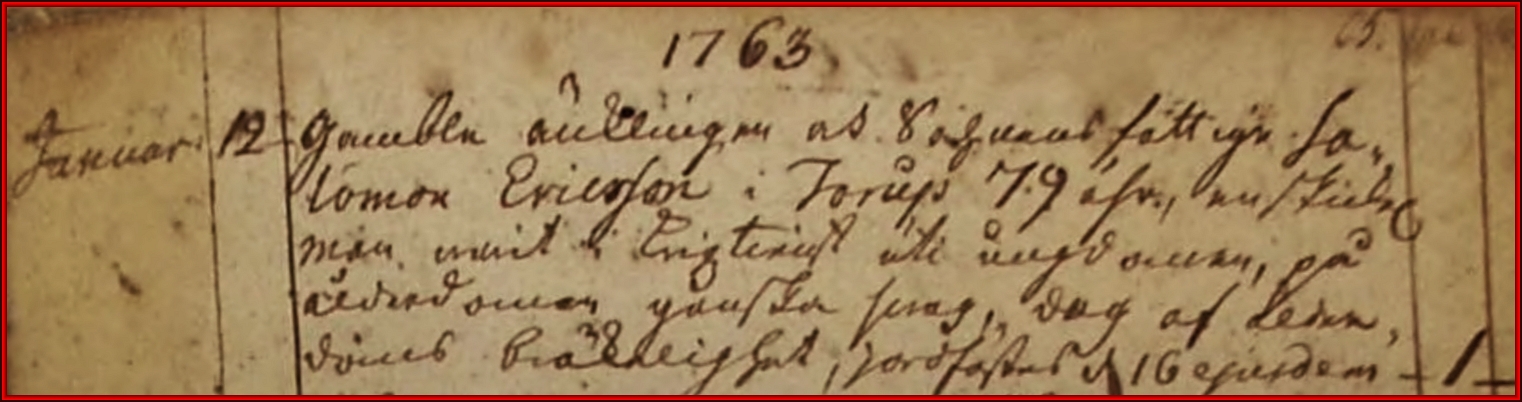 1763
Januar. 12. Gamble änklingen af Sochnens fattige Sa-
lomon Ericsson i Torup 79 åhr, en skickel
man, warit i krigztienst uti ungdomen, på
ålderdomen ganska swag, dog af ålder-
doms bräcklighet, jordfästes d 16 ejusdem – 1 –